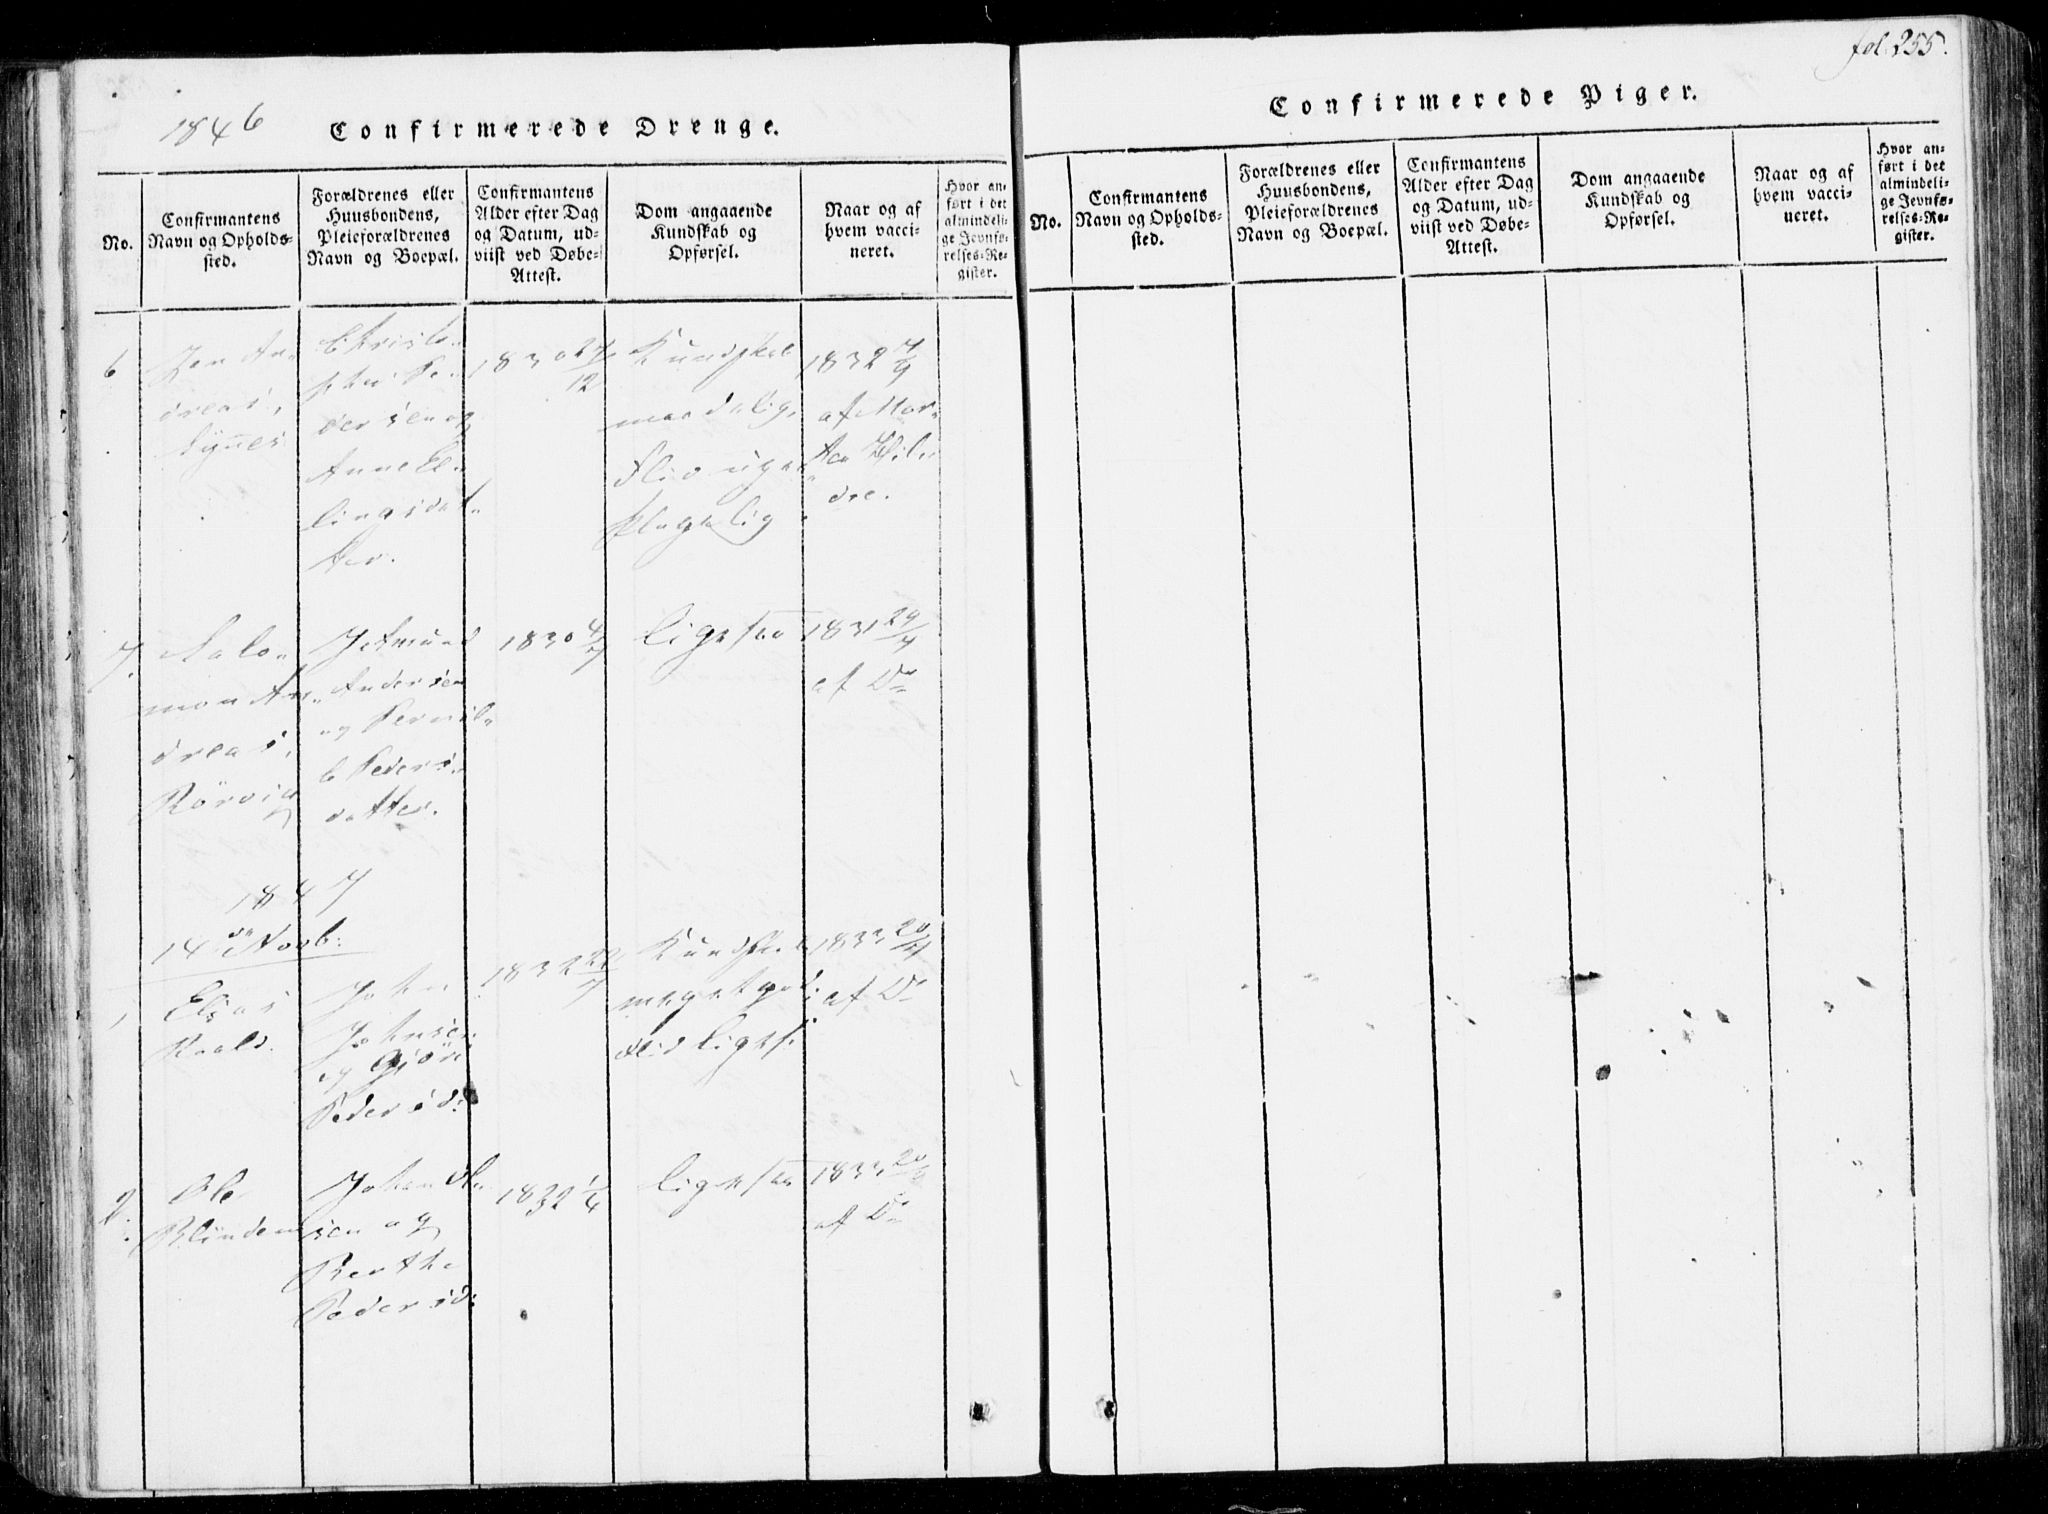 fol. 255.
1846
Confirmerede Drenge.
No.
Confirmantens
Navn og Opholds-
sted.
Forældrenes eller
Huusbondens,
Pleieforældrenes
Navn og Boepæl.
Confirmantens
Alder efter Dag
og Datum, ud-
viist ved Døbe-
Attest.
Dom angaaende
Kundskab og
Opførsel.
Naar og af
hvem vacci-
neret.
Hvor an-
ført i det
almindeli-
ge Jevnfø-
relses-Re-
gister.
6
An-
dreas,
Christo-
pher Pe-
dersen og
Anne El-
lingsdat-
ter.
1830 24/12
Kundskab
maadelig,
Flid
1832
af Mor-
ten
dre.
7.
Salo-
mon An-
dreas,
Rörvig
Jetmund
Andersen
og Pernil-
le Peders-
datter.
1830 4/7
ligesaa
1831 29/7
af Do
1847
14de Novb:
1
Elias
Raald.
John
Johnsen
og Gjöre
Pedersd:
1832 22/7
Kundsk.
meget god.
Flid liges:
1833
af Do
2.
Ole
Blindem
Johan Ol-
sen og
Berthe
Pedersd:
1832 1/6
ligesaa
1833
af Do
Confirmerede Piger.
No.
Confirmantens
Navn og Opholds-
sted.
Forældrenes eller
Huusbondens,
Pleieforældrenes
Navn og Boepæl.
Confirmantens
Alder efter Dag
og Datum, ud-
viist ved Døbe-
Attest.
Dom angaaende
Kundskab og
Opførsel.
Naar og af
hvem vacci-
neret.
Hvor an-
ført i det
almindeli-
ge Jevnfø-
relses-Re-
gister.